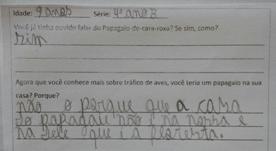 Idade: 9 anos Série: 4º ano B
Você já tinha ouvido falar do Papagaio-de-cara-roxa? Se sim, como?
sim
Agora que você conhece mais sobre tráfico de aves, você teria um papagaio na sua
casa? Porque?
não o porque que a casa
do papagaio não é na nossa é
na dele que é a floresta.